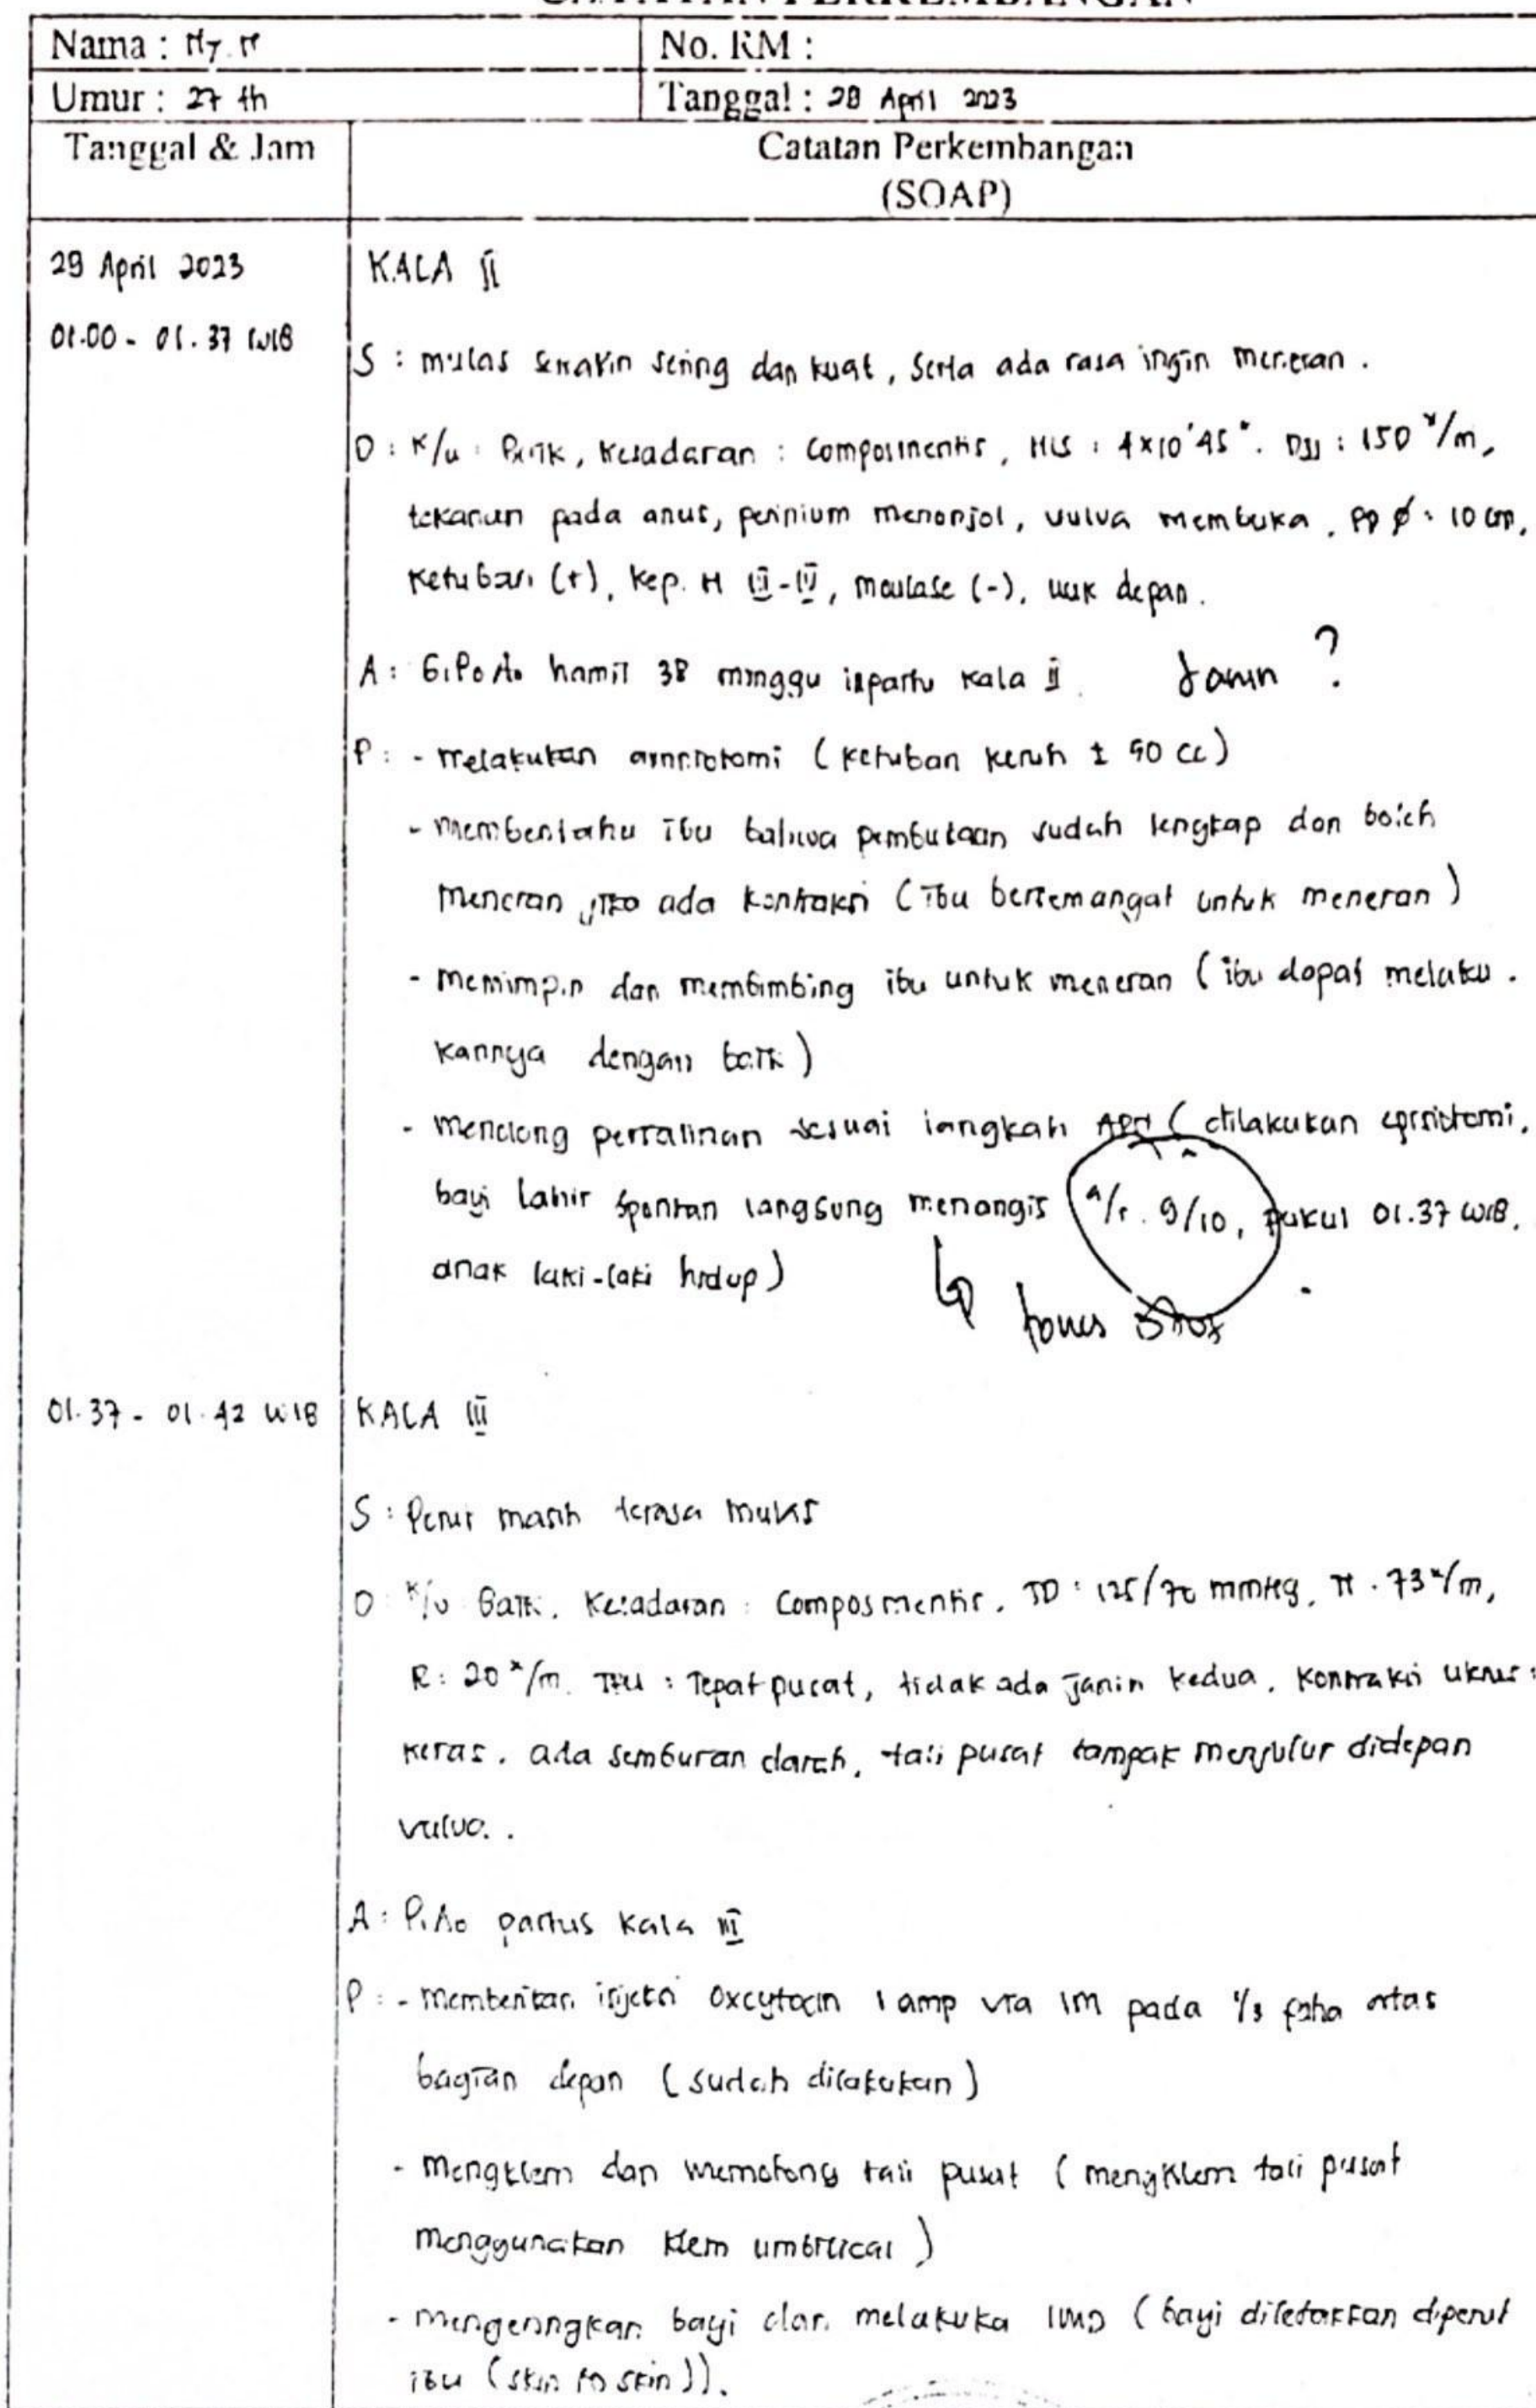 CATATAN PERKEMBANGAN
Nama : Ny. N
No. RM :
Umur : 27 th
Tanggal : 28 April 2023
Tanggal & Jam
Catatan Perkembangan
(SOAP)
29 April 2023
KALA II
01.00 - 01.37 WIB
S : mulas semakin sering dan kuat, Serta ada rasa ingin meneran.
O : K/u : Baik, Kesadaran : Composmentis, HIS : 4x10'45". DJJ : 150 x/m,
tekanan pada anus, perinium menonjol, vulva membuka. PP ø : 10 cm,
Ketuban (+), Kep. H III-IV, moulase (-), uuk depan.
A : G1P0A0 hamil 38 minggu inpartu kala II. Janin ?
P : - Melakukan amniotomi (Ketuban keruh ± 50 cc)
- Memberitahu ibu bahwa pembukaan sudah lengkap dan boleh
Meneran jika ada kontraksi (ibu bersemangat untuk meneran)
- Memimpin dan membimbing ibu untuk meneran (ibu dapat melaku-
kannya dengan baik)
- Menolong persalinan sesuai langkah APN (dilakukan episiotomi,
bayi lahir spontan langsung menangis a/s. 9/10, pukul 01.37 WIB.
anak laki-laki hidup)
01.37 - 01.42 WIB
KALA III
S : Perut masih terasa mulas
O : K/u Baik. Kesadaran : Composmentis. TD : 125/70 mmHg. N . 73 x/m,
R : 20 x/m. TFU : Tepat pusat, tidak ada janin kedua. Kontraksi uterus :
keras. ada semburan darah, tali pusat tampak menjulur didepan
vulva..
A : P1A0 partus Kala III
P : - Memberikan injeksi Oxcytocin 1 amp via IM pada 1/3 paha atas
bagian depan (sudah dilakukan)
- Mengklem dan memotong tali pusat (mengklem tali pusat
menggunakan klem umbilical)
- Mengeringkan bayi dan melakuka IMD (bayi diletakkan diperut
ibu (skin to skin)).